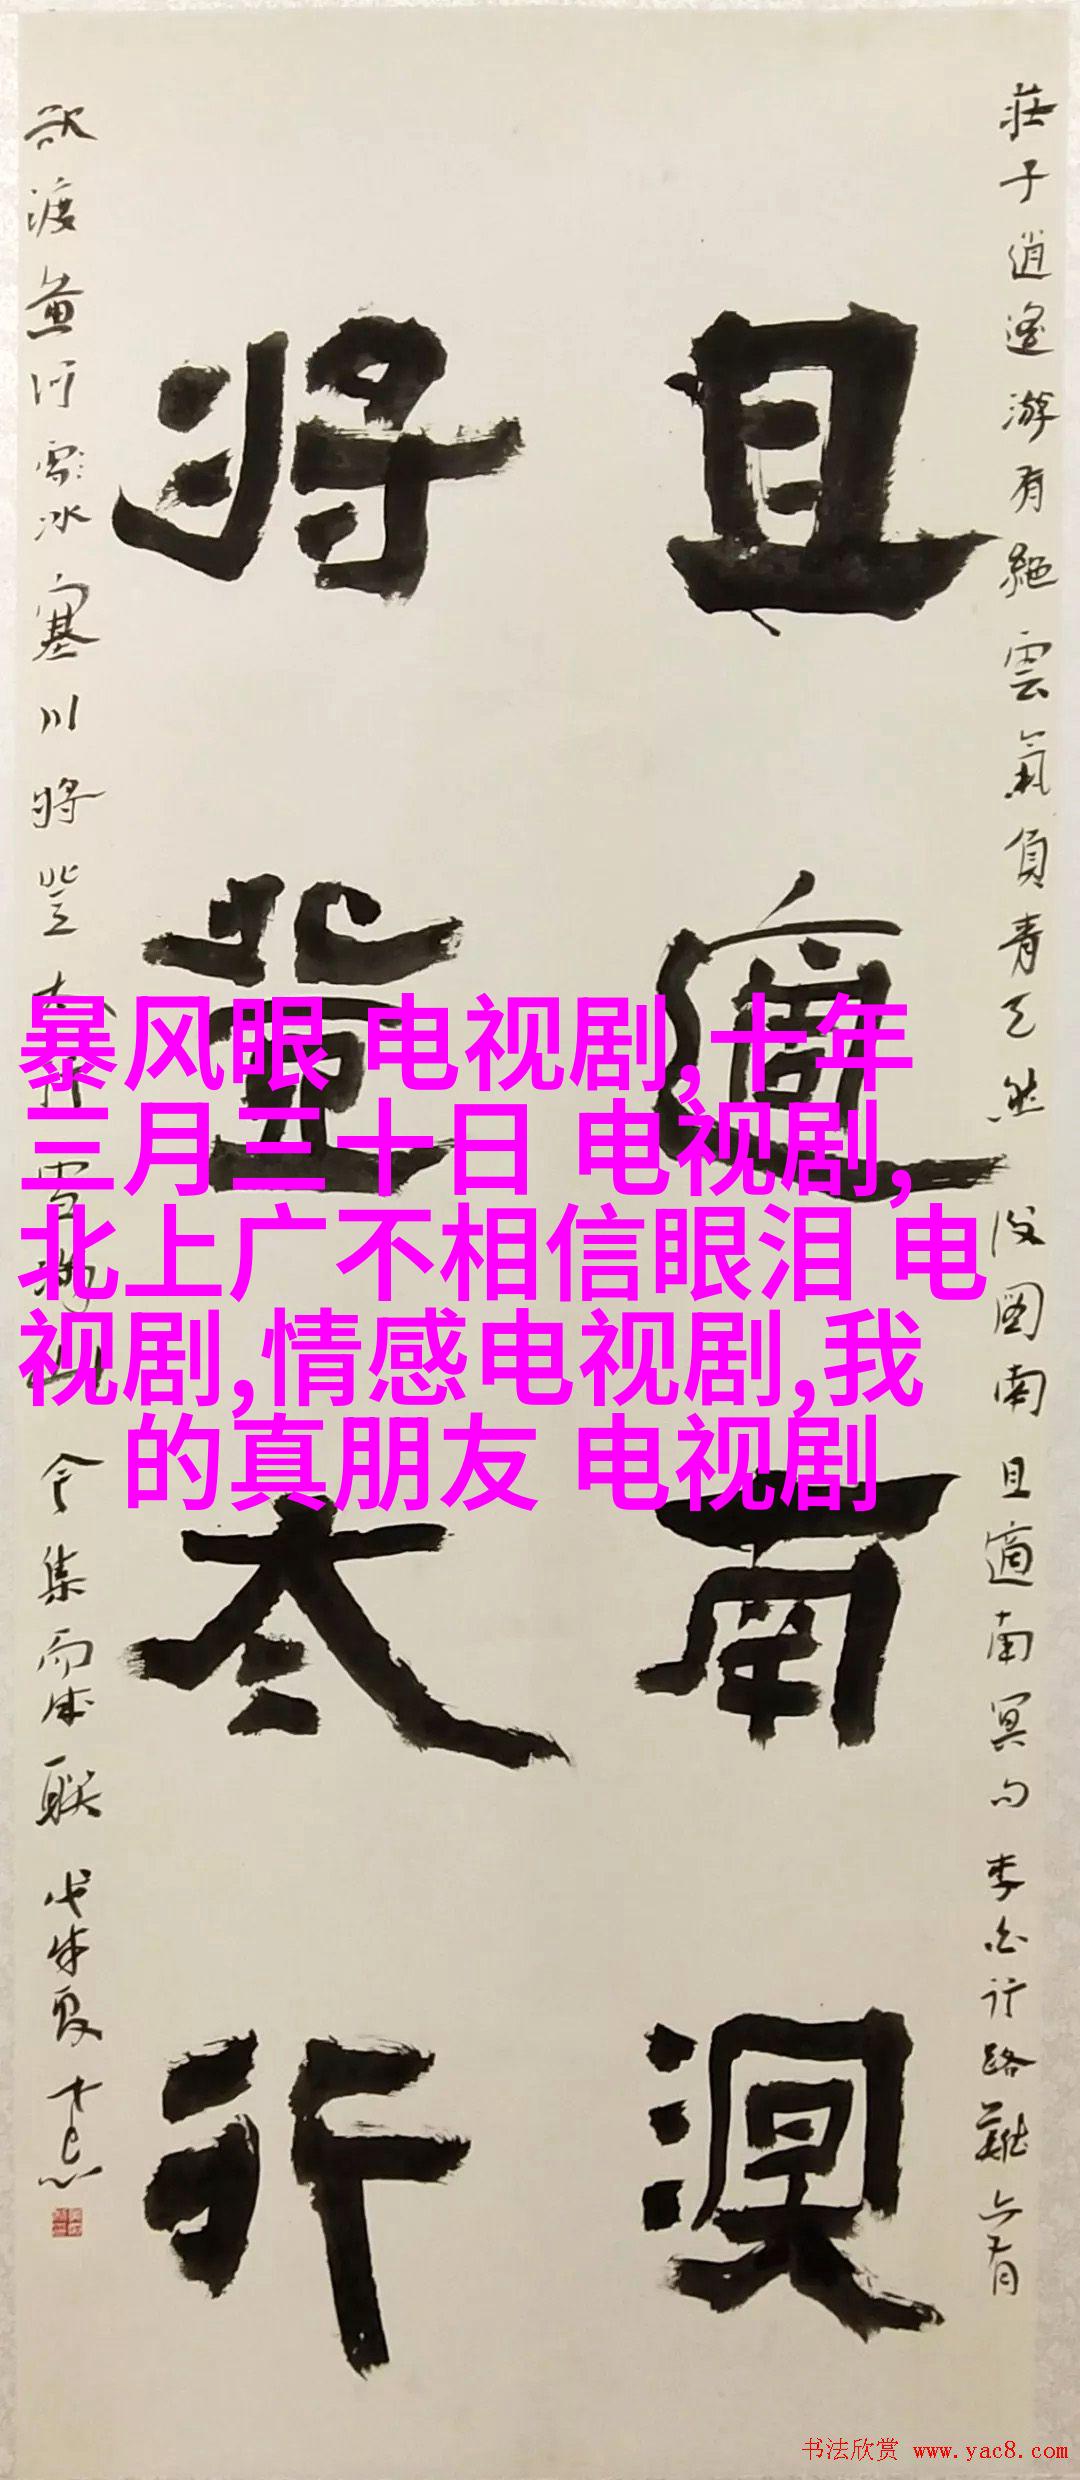 莊子逍遙游有絕雲氣負青天然後圖南且適南冥句李白行路難亦有
且適南溟
將登太行
欲渡黃河冰塞川將登太行雪滿山今集而成聯戊戌夏
暴风眼 电视剧,十年
三月三十日 电视剧,
北上广不相信眼泪 电
视剧,情感电视剧,我
的真朋友 电视剧
书法欣赏 www.yac8.com